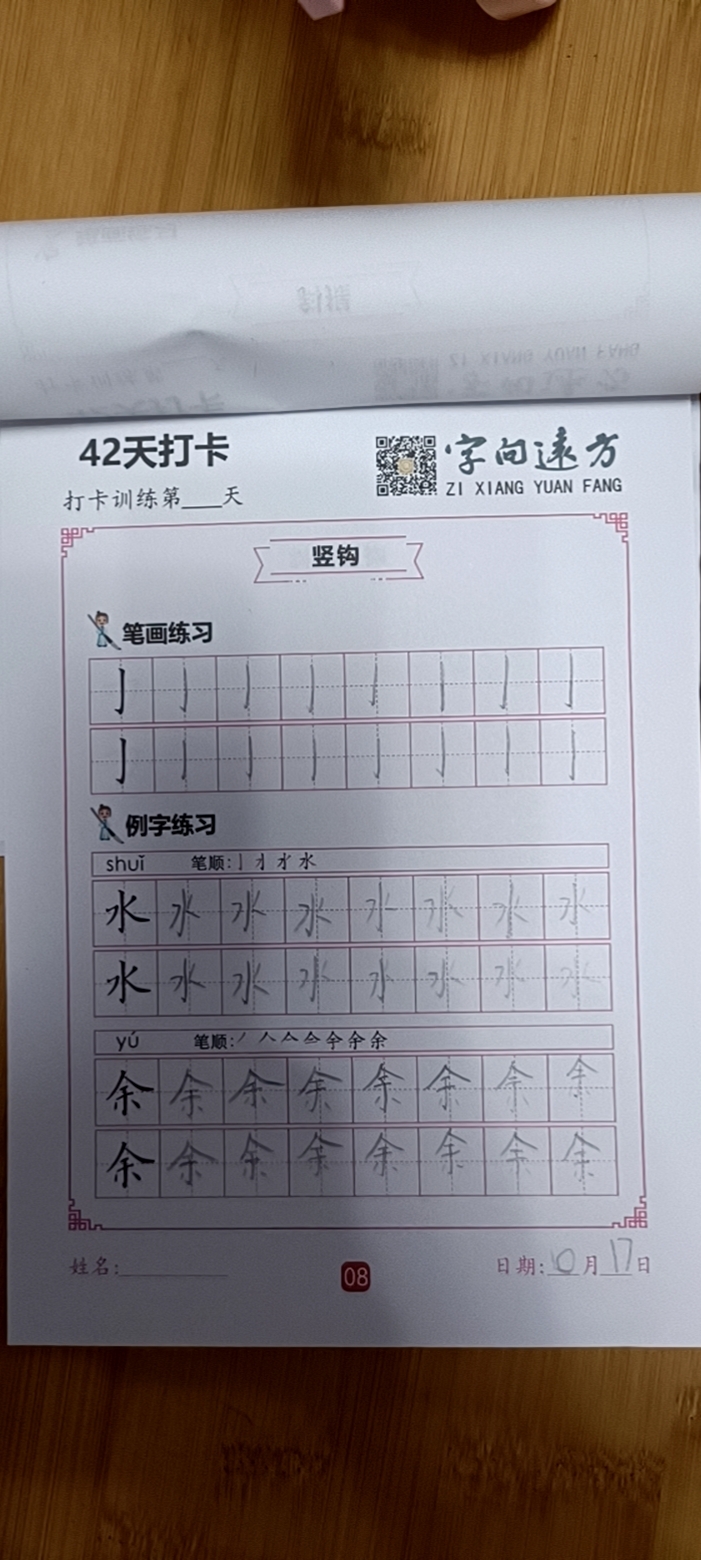 42天打卡
字向远方
打卡训练第___天
ZI XIANG YUAN FANG
竖钩
笔画练习
亅 亅 亅 亅 亅 亅 亅 亅
亅 亅 亅 亅 亅 亅 亅 亅
例字练习
shuǐ 笔顺:
水 水 水 水 水 水 水 水
水 水 水 水 水 水 水 水
yú 笔顺:
余 余 余 余 余 余 余 余
余 余 余 余 余 余 余 余
姓名:
08
日期:10月17日